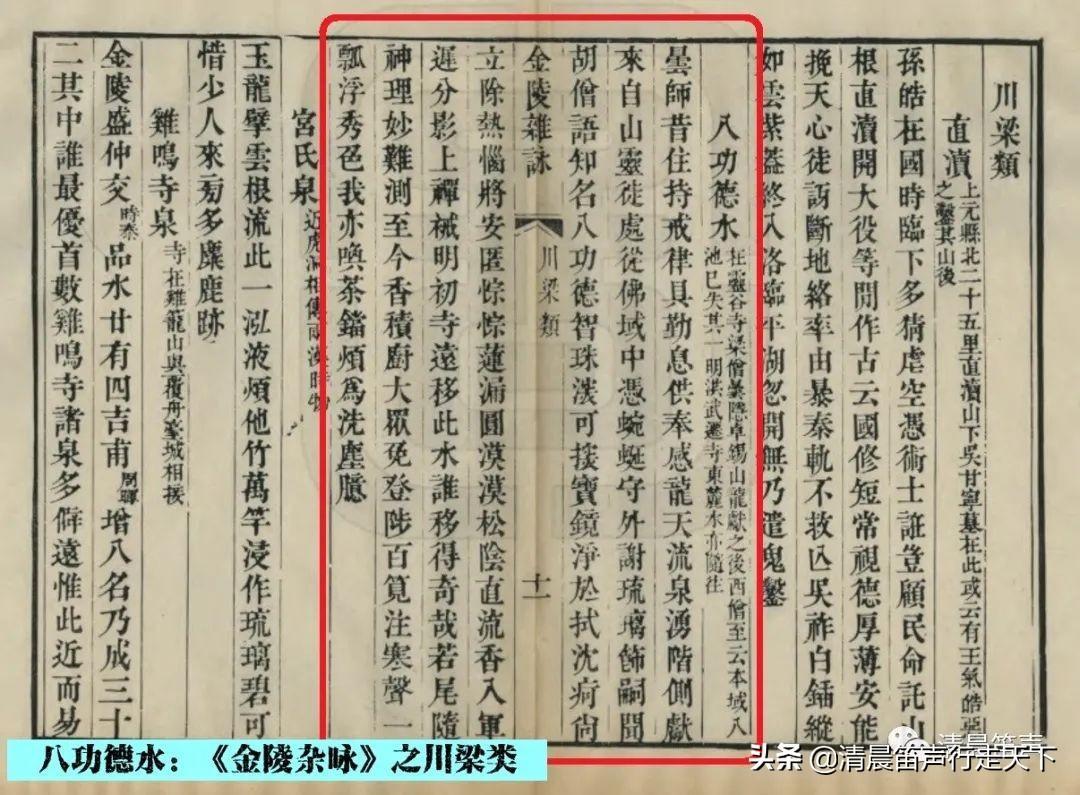 川梁類
直瀆上元縣北二十五里直瀆山下吳甘寧墓在此或云有王氣皓惡
之鑿其山後
孫皓在國時臨下多猜虐空憑術士誑豈顧民命託山
根直瀆開大役等閒作古云國修短常視德厚薄安能
挽天心徒訝斷地絡率由暴秦軌不救亾吳祚白鍤縱
如雲紫蓋終入洛臨平湖忽開無乃遣鬼鑿
八功德水在靈谷寺梁僧曇隱卓錫山龍獻之後西僧至云本域八
池巳失其一明洪武遷寺東麓水亦隨往
曇師昔住持戒律具勤息供奉感龍天流泉湧階側獻
來自山靈徒處從佛域中憑蜿蜒守外謝琉璃飾嗣聞
胡僧語知名八功德智珠淡可接寶鏡淨於拭沈疴尙
金陵雜詠 川梁類 十一
立除熱惱將安匿悰悰蓮漏圓漠漠松陰直流香入軍
遲分影上禪祴明初寺遠移此水誰移得奇哉若尾隨
神理妙難測至今香積廚大眾免登陟百筧注寒聲一
瓢浮秀色我亦喚茶鐺煩爲洗塵臆
宮氏泉近虎洞相傳西漢時物
玉龍擘雲根流此一泓液煩他竹萬竿浸作琉璃碧可
惜少人來芴多麋鹿跡
雞鳴寺泉寺在雞龍山與覆舟臺城相接
金陵盛仲交時泰品水廿有四吉甫周暉增八名乃成三十
二其中誰最優首數雞鳴寺諸泉多僻遠惟此近而易
八功德水：《金陵杂咏》之川梁类
清晨笛声
头条 @清晨笛声行走天下